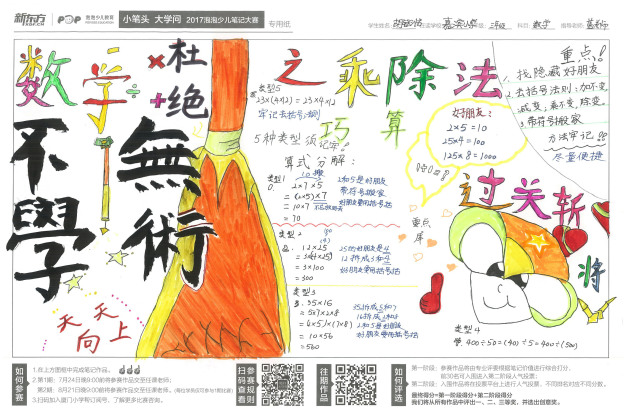 新东方
XDF.CN
POP
泡泡少儿教育
小笔头 大学问 2017泡泡少儿笔记大赛
专用纸
学生姓名:
年级:
三年级
科目: 数学
指导老师:
数学:杜绝
不學無術
之乘除法
巧算
类型5
23×(4×2)=23×4×2
牢记去括号法则
5种类型 须牢记牢!
算式分解:
类型1
2×7×5
=(2×5)×7
=10×7
=70
2和5是好朋友
带符号搬家
好朋友要用括号括
类型2
12×25
=3×(4×25)
=3×100
=300
25的好朋友是4
12拆成3和4
好朋友要用括号括
类型3
35×16
=5×7×2×8
=(5×2)×(7×8)
=10×56
=560
35拆成5和7
16拆成2和8
2和5是好朋友
好朋友要用括号括
重点!
1. 找隐藏好朋友
2. 去括号法则:加不变,
减变;乘不变,除变。
3. 带符号搬家
方法牢记!!
尽量便捷
好朋友:
2×5=10
25×4=100
125×8=1000
重点库
过关斩将
类型4
天天向上
如何参赛
1.在上方图框中完成笔记作品。
2.第1期: 7月24日晚9:00前将参赛作品交至任课老师;
第2期: 8月21日晚9:00前将参赛作品交至任课老师。
3.扫码加入厦门小学帮订阅号,了解更多比赛咨询。
扫码查看参赛规则
往期作品
如何评选
第一阶段:参赛作品将由专业评委根据笔记价值进行综合打分,
前30名可入围进入第二阶段人气投票;
第二阶段:入围作品将在投票平台上进行人气投票,不同排名对应不同分数。
最终得分=第一阶段得分+第二阶段得分
我们将从所有作品中评出一、二、三等奖,并选出创意奖。